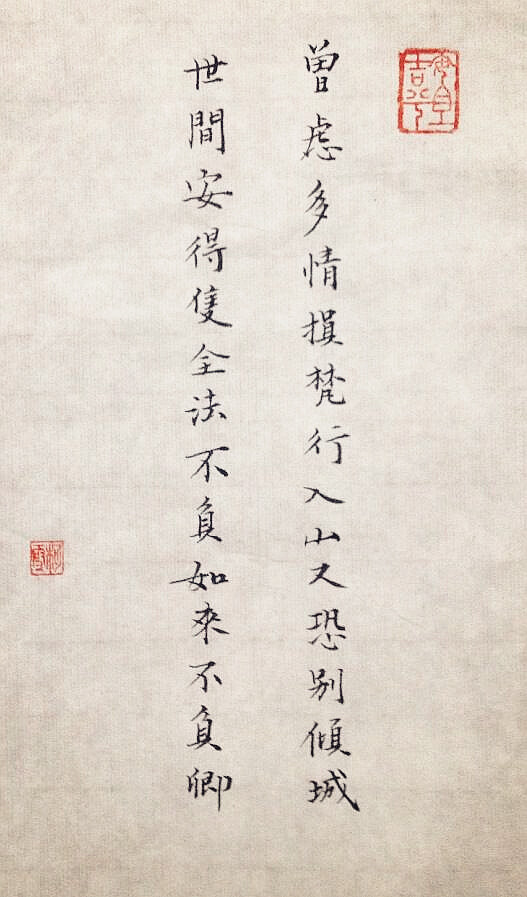 曾虑多情損梵行入山又恐别傾城
世間安得隻全法不負如來不負卿